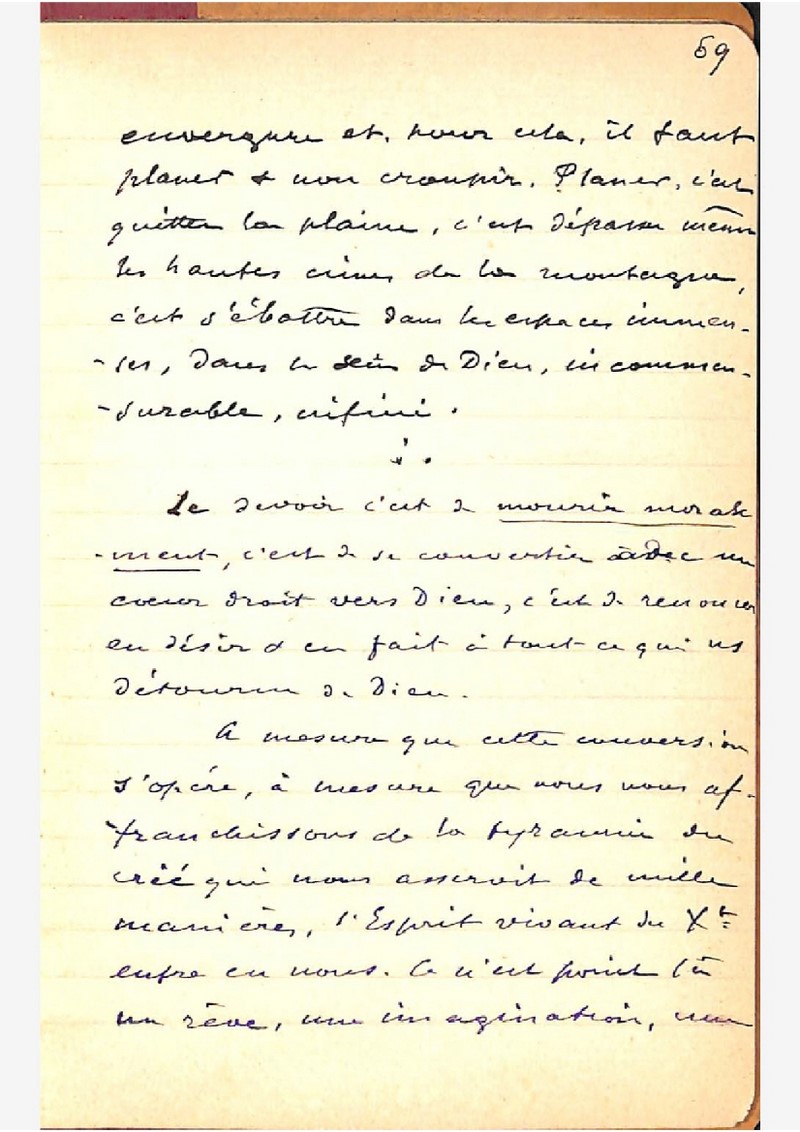 59
envergure et, pour cela, il faut
planer & non croupir. Planer, c'est
quitter la plaine, c'est dépasser même
les hautes cimes de la montagne,
c'est s'ébattre dans les espaces immen-
-ses, dans le sein de Dieu, incommen-
-surable, infini.
Le devoir c'est de mourir morale
-ment, c'est de se convertir avec un
coeur droit vers Dieu, c'est de renoncer
en désir & en fait à tout ce qui ns
détourne de Dieu.
A mesure que cette conversion
s'opére, à mesure que nous nous af-
-franchissons de la tyrannie du
créé qui nous asservit de mille
manières, l'Esprit vivant du Xt
entre en nous. Ce n'est point là
un rêve, une imagination, une